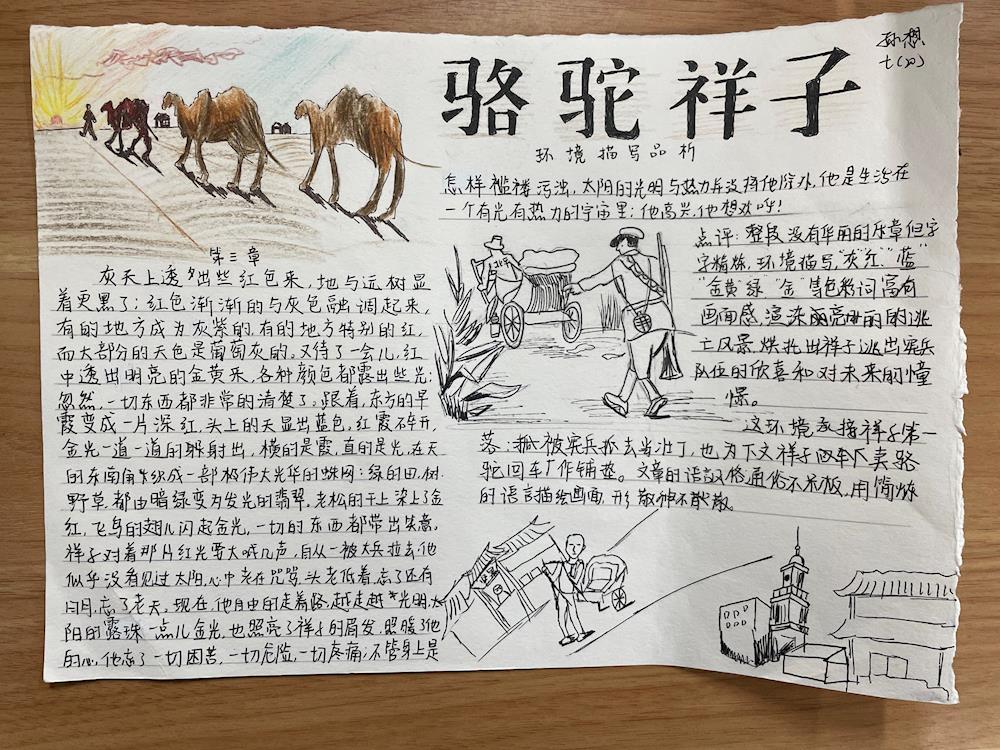 骆驼祥子
孙想
七(四)
环境描写品析
第三章
灰天上透出些红色来,地与远树显
着更黑了;红色渐渐的与灰色融调起来,
有的地方成为灰紫的,有的地方特别的红,
而大部分的天色是葡萄灰的。又待了一会儿,红
中透出明亮的金黄来,各种颜色都露出些光;
忽然,一切东西都非常的清楚了。跟着,东方的早
霞变成一片深红,头上的天显出蓝色。红霞碎开,
金光一道一道的躲射出,横的是霞,直的是光,在天
的东南角织成一部极伟大光华的蛛网:绿的田,树,
野草,都由暗绿变为发光的翡翠。老松的干上染上了金
红,飞鸟的翅儿闪起金光,一切的东西都带出笑意。
祥子对着那片红光要大喊几声,自从一被大兵拉去,他
似乎没看见过太阳,心中老在咒骂,头老低着,忘了还有
日月,忘了老天。现在,他自由的走着路,越走越光明,太
阳的露珠一点儿金光,也照亮了祥子的眉发,照暖了他
的心。他忘了一切困苦,一切危险,一切疼痛;不管身上是
怎样褴褛污浊,太阳的光明与热力并没将他除外,他是生活在
一个有光有热力的宇宙里;他高兴,他想欢呼!
点评:整段没有华丽的乐章但字
字精炼,环境描写,"灰""红""蓝"
"金黄""绿""金"等色彩词富有
画面感,渲染丽亮丽的逃
亡风景,烘托出祥子逃出宪兵
队伍的欣喜和对未来的憧
憬。
这环境承接祥子第一
落:被宪兵抓去当壮丁,也为下文祥子卖骆
驼回车厂作铺垫。文章的语言风格通俗不呆板,用简炼
的语言描绘画面,形散神不散。